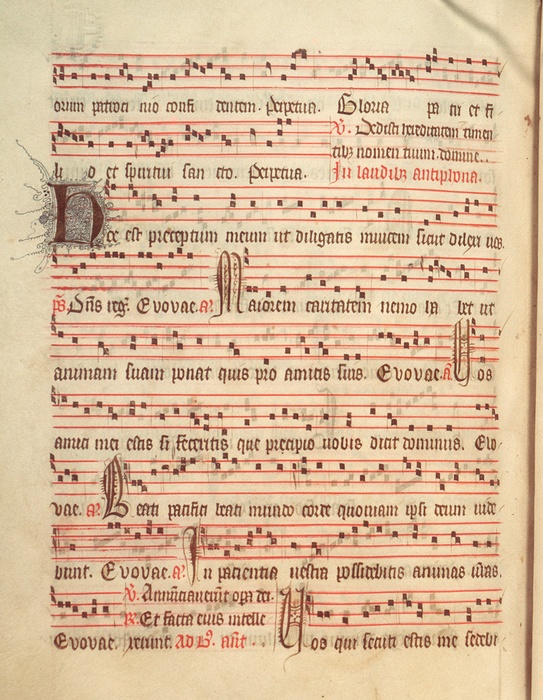 orum patroci nio confi dentem. Perpetua. Gloria pa tri et fi
V. Dedisti hereditatem timen
tibz nomen tuum domine..
li o et spiritui san cto. Perpetua. In laudibz antiphona.
Hec est preceptum meum ut diligatis inuicem sicut dilexi uos.
ps. Dns reg. Evovae. a. Maiorem caritatem nemo ha bet ut
animam suam ponat quis pro amicis suis. Evovae. a. Vos
amici mei estis si feceritis que precipio uobis dicit dominus. Evo
vae. a. Beati pacifici beati mundo corde quoniam ipsi deum uide
bunt. Evovae. a. In patientia uestra possidebitis animas uras.
V. Annunciauerunt opa dei.
R. Et facta eius intelle
Evovae. xerunt. ad B. ant. Vos qui secuti estis me sedebi